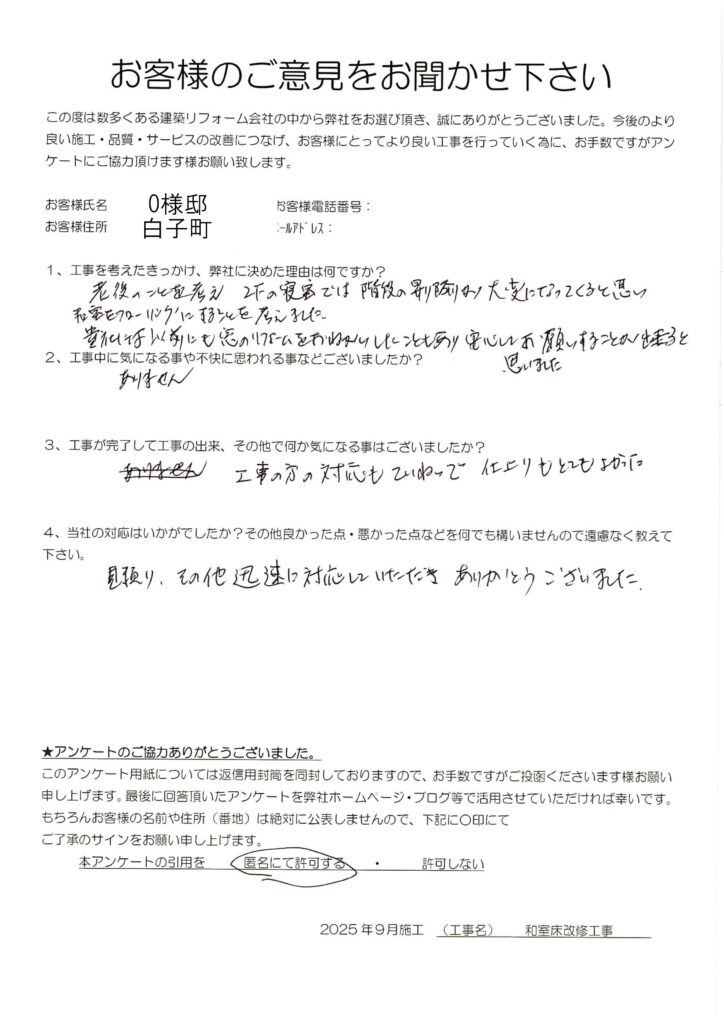 お客様のご意見をお聞かせ下さい
この度は数多くある建築リフォーム会社の中から弊社をお選び頂き、誠にありがとうございました。今後のより
良い施工・品質・サービスの改善につなげ、お客様にとってより良い工事を行っていく為に、お手数ですがアン
ケートにご協力頂けます様お願い致します。
お客様氏名 O様邸 お客様電話番号：
お客様住所 白子町 ﾒｰﾙｱﾄﾞﾚｽ：
1、工事を考えたきっかけ、弊社に決めた理由は何ですか？
老後のことを考え 2Fの寝室では 階段の昇り降りが 大変になってくると思い
和室をフローリングにすることを考えました。
貴社には以前にも窓のリフォームをおねがいしたこともあり 安心してお願いすることが出来ると
思いました
2、工事中に気になる事や不快に思われる事などございましたか？
ありません
3、工事が完了して工事の出来、その他で何か気になる事はございましたか？
ありません 工事の方の対応もていねいで 仕上りもとてもよかった
4、当社の対応はいかがでしたか？その他良かった点・悪かった点などを何でも構いませんので遠慮なく教えて
下さい。
見積り、その他 迅速に対応していただき ありがとうございました。
★アンケートのご協力ありがとうございました。
このアンケート用紙については返信用封筒を同封しておりますので、お手数ですがご投函くださいます様お願い
申し上げます。最後に回答頂いたアンケートを弊社ホームページ・ブログ等で活用させていただければ幸いです。
もちろんお客様の名前や住所（番地）は絶対に公表しませんので、下記に〇印にて
ご了承のサインをお願い申し上げます。
本アンケートの引用を 匿名にて許可する ・ 許可しない
2025年9月施工 （工事名） 和室床改修工事